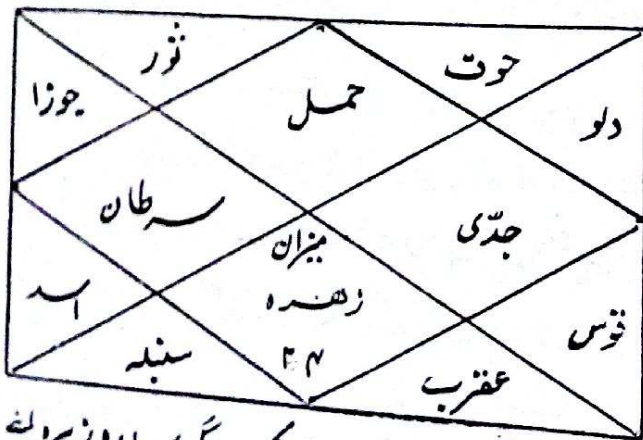 ثور
حوت
جوزا
حمل
دلو
سرطان
جدّی
میزان
زھرہ
۲۴
اسد
قوس
سنبلہ
عقرب